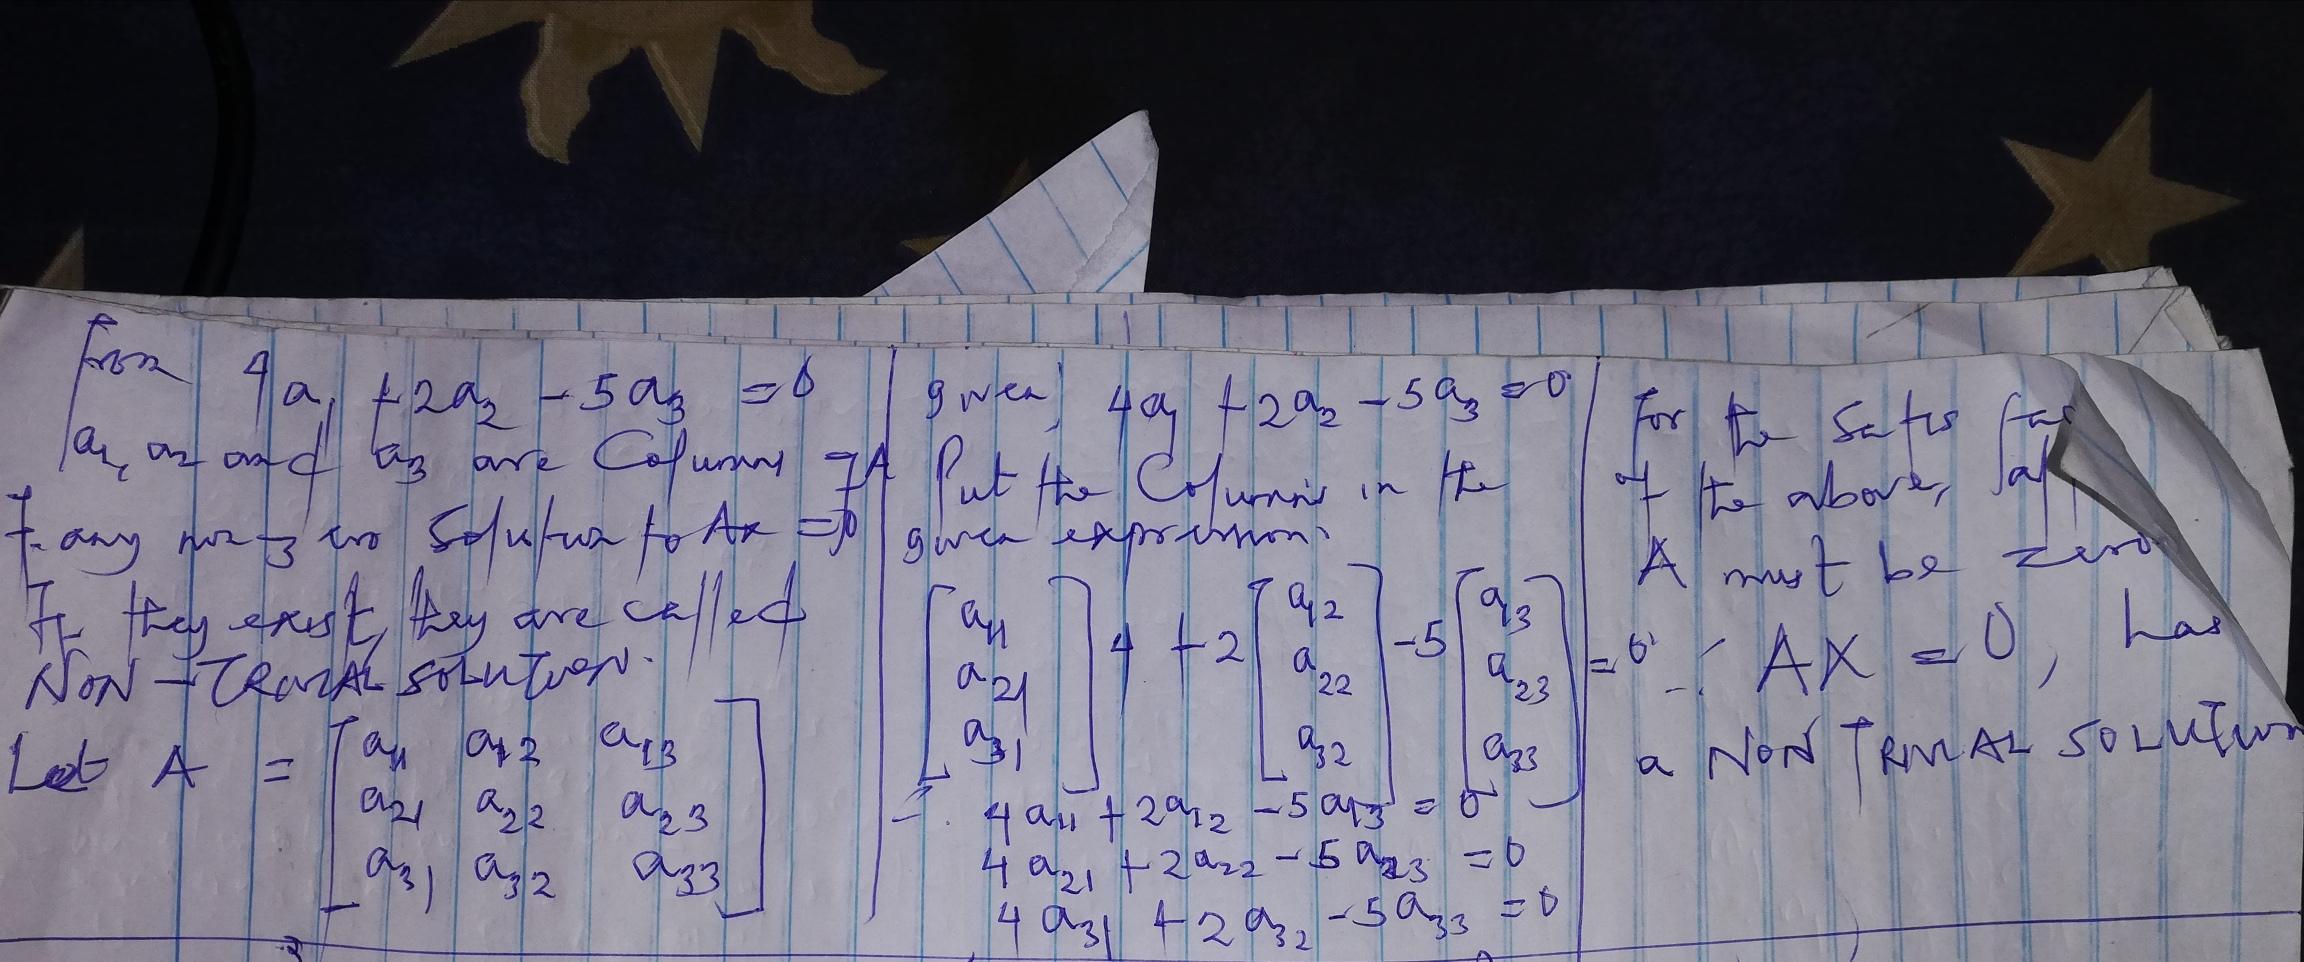 From 4a₁ + 2a₂ - 5a₃ = 0
a₁, a₂ and a₃ are Columns of A
If any non-zero Solution to Ax = 0
If they exist, they are called
NON - TRIVIAL SOLUTION.
Let A = [a₁₁ a₁₂ a₁₃
a₂₁ a₂₂ a₂₃
a₃₁ a₃₂ a₃₃]
given, 4a₁ + 2a₂ - 5a₃ = 0
Put the Columns in the
given expression.
[a₁₁ a₂₁ a₃₁] 4 + 2 [a₁₂ a₂₂ a₃₂] - 5 [a₁₃ a₂₃ a₃₃] = 0
∴ 4a₁₁ + 2a₁₂ - 5a₁₃ = 0
4a₂₁ + 2a₂₂ - 5a₂₃ = 0
4a₃₁ + 2a₃₂ - 5a₃₃ = 0
For the
of the above,
A must be zero
∴ AX = 0, has
a NON TRIVIAL SOLUTION